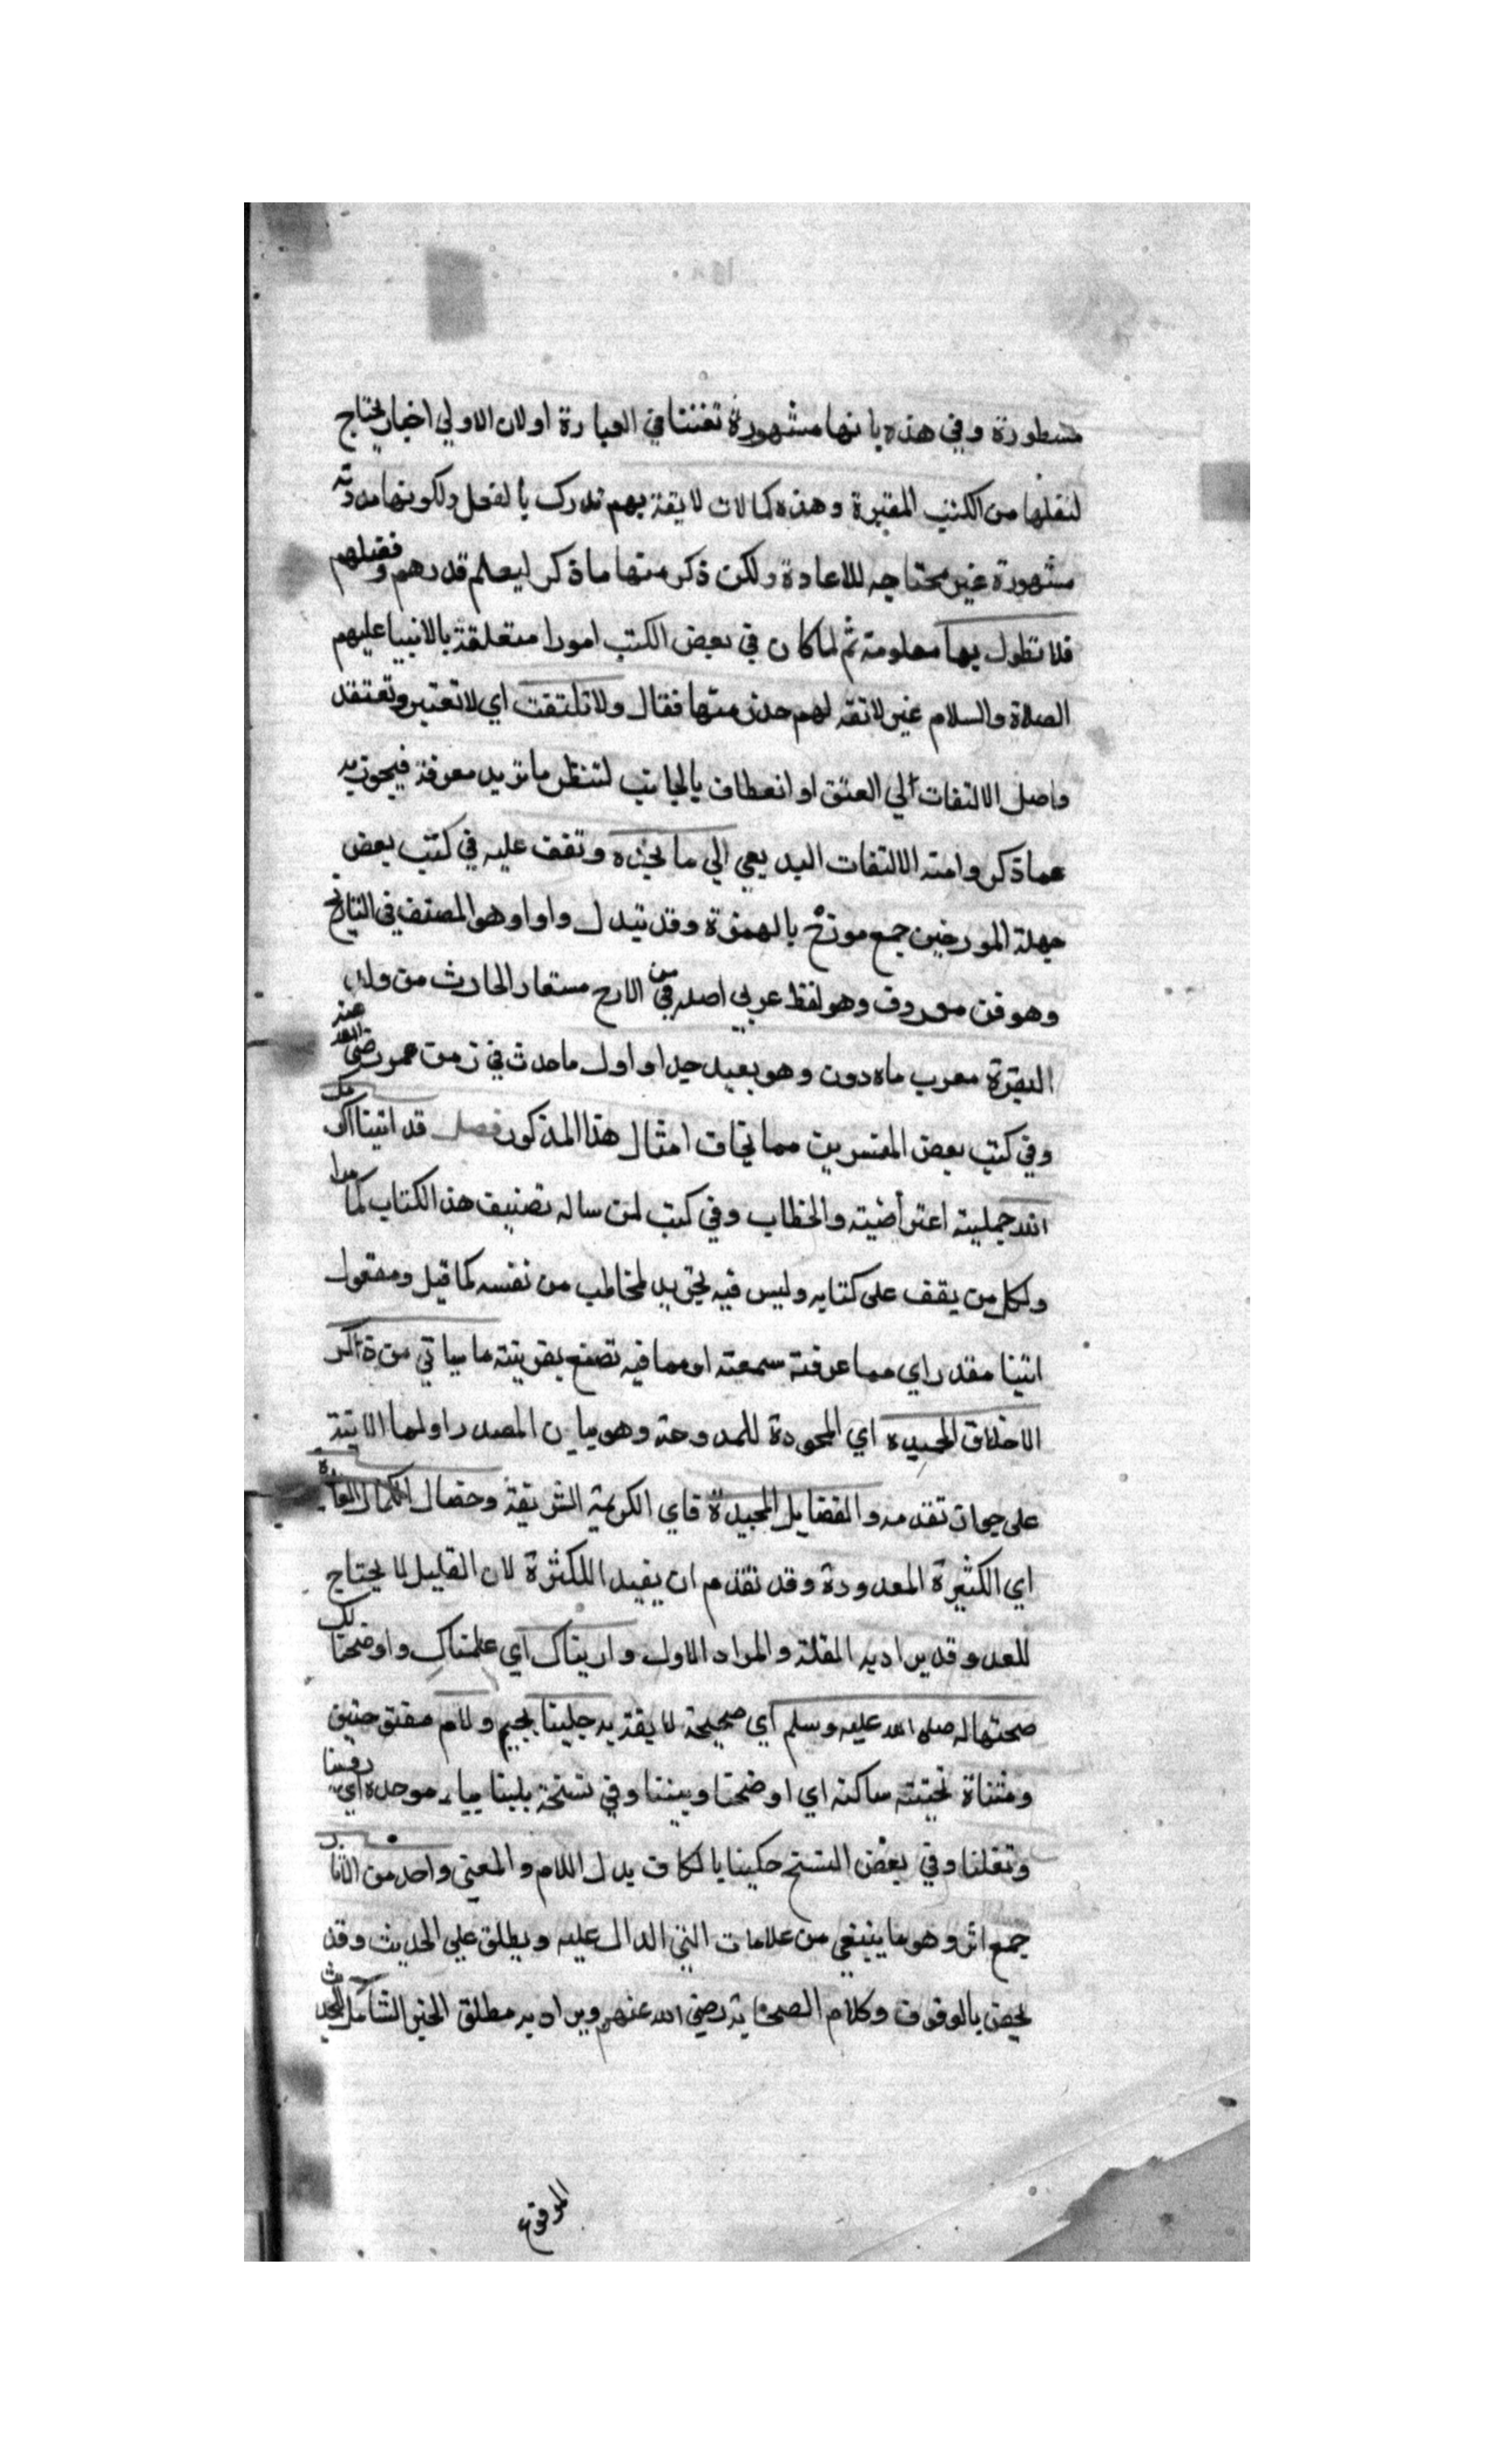 مسطورة وفي هذه بانها مشهورة تفننا في العبارة او لان الاولي اخبار يحتاج
لنقلها من الكتب المعتبرة وهذه كمالات لايقة بهم تدرك بالفعل ولكونها مدونة
مشهورة غير محتاجه للاعادة ولكن ذكر منها ما ذكر ليعلم قدرهم وفضلهم
فلا نطول بها معلومة ثم لما كان في بعض الكتب امورا متعلقة بالانبيا عليهم
الصلاة والسلام غير لائقه لهم حذر منها فقال ولا تلتفت اي لا تعتبر وتعتقد
واصل الالتفات الي العنق او انعطاف بالجانب لتنظر ما تريد معرفة فيجوز به
عما ذكر وامنه الالتفات البديعي الي ما تجده وتقف عليه في كتب بعض
جهلة المورخين جمع مورخ بالهمزة وقد تبدل واوا وهو المصنف في التاريخ
وهو فن معروف وهو لفظ عربي اصله في من الارخ مستعار الحارث من ولد
البقرة معرب ماه دون وهو بعيد جدا واول ما حدث في زمن عمر رضي الله عنه
وفي كتب بعض المفسرين مما يخاف امثال هذا المذكور فصل قد اتينا اكرمك
الله جملية اعتراضية والخطاب وفي كتب لمن ساله تصنيف هذا الكتاب كما مرا
ولكل من يقف على كتابه وليس فيه تجريد لمخاطب من نفسه كما قيل ومفعول
اتينا مقدر اي مما عرفته سمعته او مما فيه تصنع بقرينة ما سياتي من ذاكر
الاخلاق الحميده اي المحمودة للممدوحة وهو بيان المصدر اولما الاتية
على جواز تقدمه والفضايل المجيدة فاي الكريمة الشريفة وخصال الكمال العديدة
اي الكثيرة المعدودة وقد تقدم ان يفيد اللكثرة لان القليل لا يحتاج
للعد وقد يراد به القلة والمراد الاول واريناك اي علمناك واوضحنا لك
صحتها له صلى الله عليه وسلم اي صحيحة لايقة به جلينا بجيم ولام مفتوحتين
ومثناة تحتية ساكنه اي اوضحنا وبيننا وفي نسخة بلينا بباء موحدة اي روينا
ونقلنا وفي بعض النسخ حكينا بالكاف بدل اللام والمعني واحد من الاثار
جمع اثر وهو ما ينبغي من علامات الشي الدال عليه ويطلق علي الحديث وقد
يخص بالوقوف وكلام الصحابة رضي الله عنهم ويراد به مطلق الخبر الشامل للحديث
الموقوع